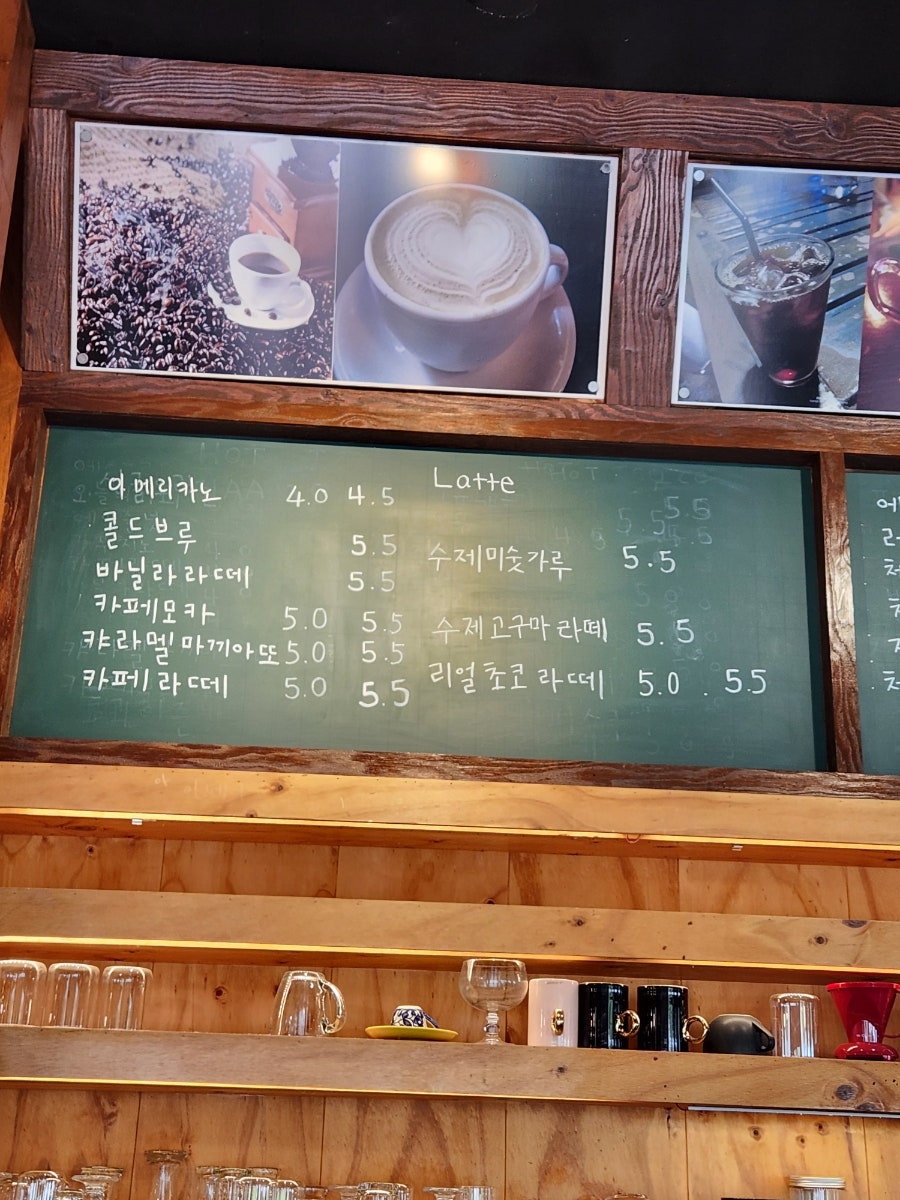 아메리카노 4.0 4.5
콜드브루 5.5
바닐라라떼 5.5
카페모카 5.0 5.5
캬라멜마끼아또 5.0 5.5
카페라떼 5.0 5.5
Latte
수제미숫가루 5.5
수제고구마라떼 5.5
리얼초코라떼 5.0 . 5.5